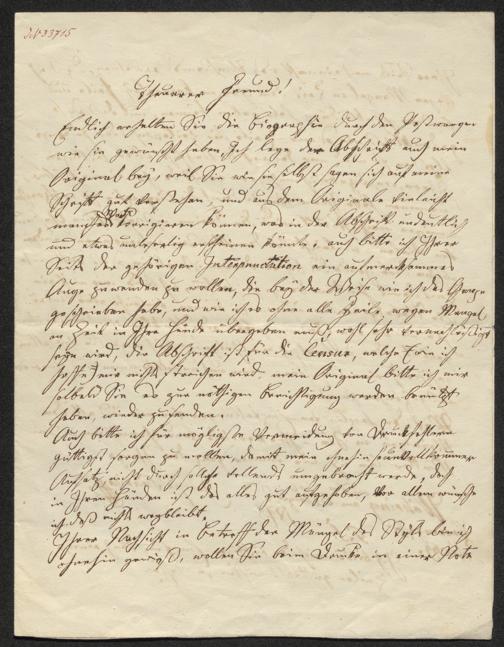 JN 33715
Theurer Freund!
Endlich erhalten Sie die Biographie durch den Postwagen
wie sie gewünscht haben, Ich lege der Abschrift auch mein
Original bey, weil Sie wie sie selbst sagen sich auf meine
Schrift gut verstehen, und aus dem Originale vieleicht
manches corrigieren können, was in der Abschrift undeutlich
und etwas unleserlich erscheinen könnte, auch bitte ich Ihrer
Seits der gehörigen Interpunctation ein aufmerksames
Auge zuwenden zu wollen, die bey der Weise wie ich das Ganze
geschrieben habe, und wie ich es ohne alle Feile, wegen Mangel
an Zeit in Ihre Hände übergeben muß, wohl sehr vernachläßigt
seyn wird, die Abschrift ist für die Censur, welche (wie ich
hoffe) mir nichts streichen wird. mein Original bitte ich mir
sobald Sie es zur nöthigen Berichtigung werden benützt
haben, wieder zusenden.
Auch bitte ich für möglichste Vermeidung von Druckfehlern
gütigst sorgen zu wollen, damit mein ohnehin so unvollkommner
Aufsatz nicht durch solche vollends umgebracht werde, doch
in Ihren Händen ist das alles gut aufgehoben, vor allem wünsche
ich daß nichts wegbleibt,
Ihrer Nachsicht in betreff der Mängel des Styls bin ich
ohnehin gewiß, wollen Sie beim Drucke in einer Note